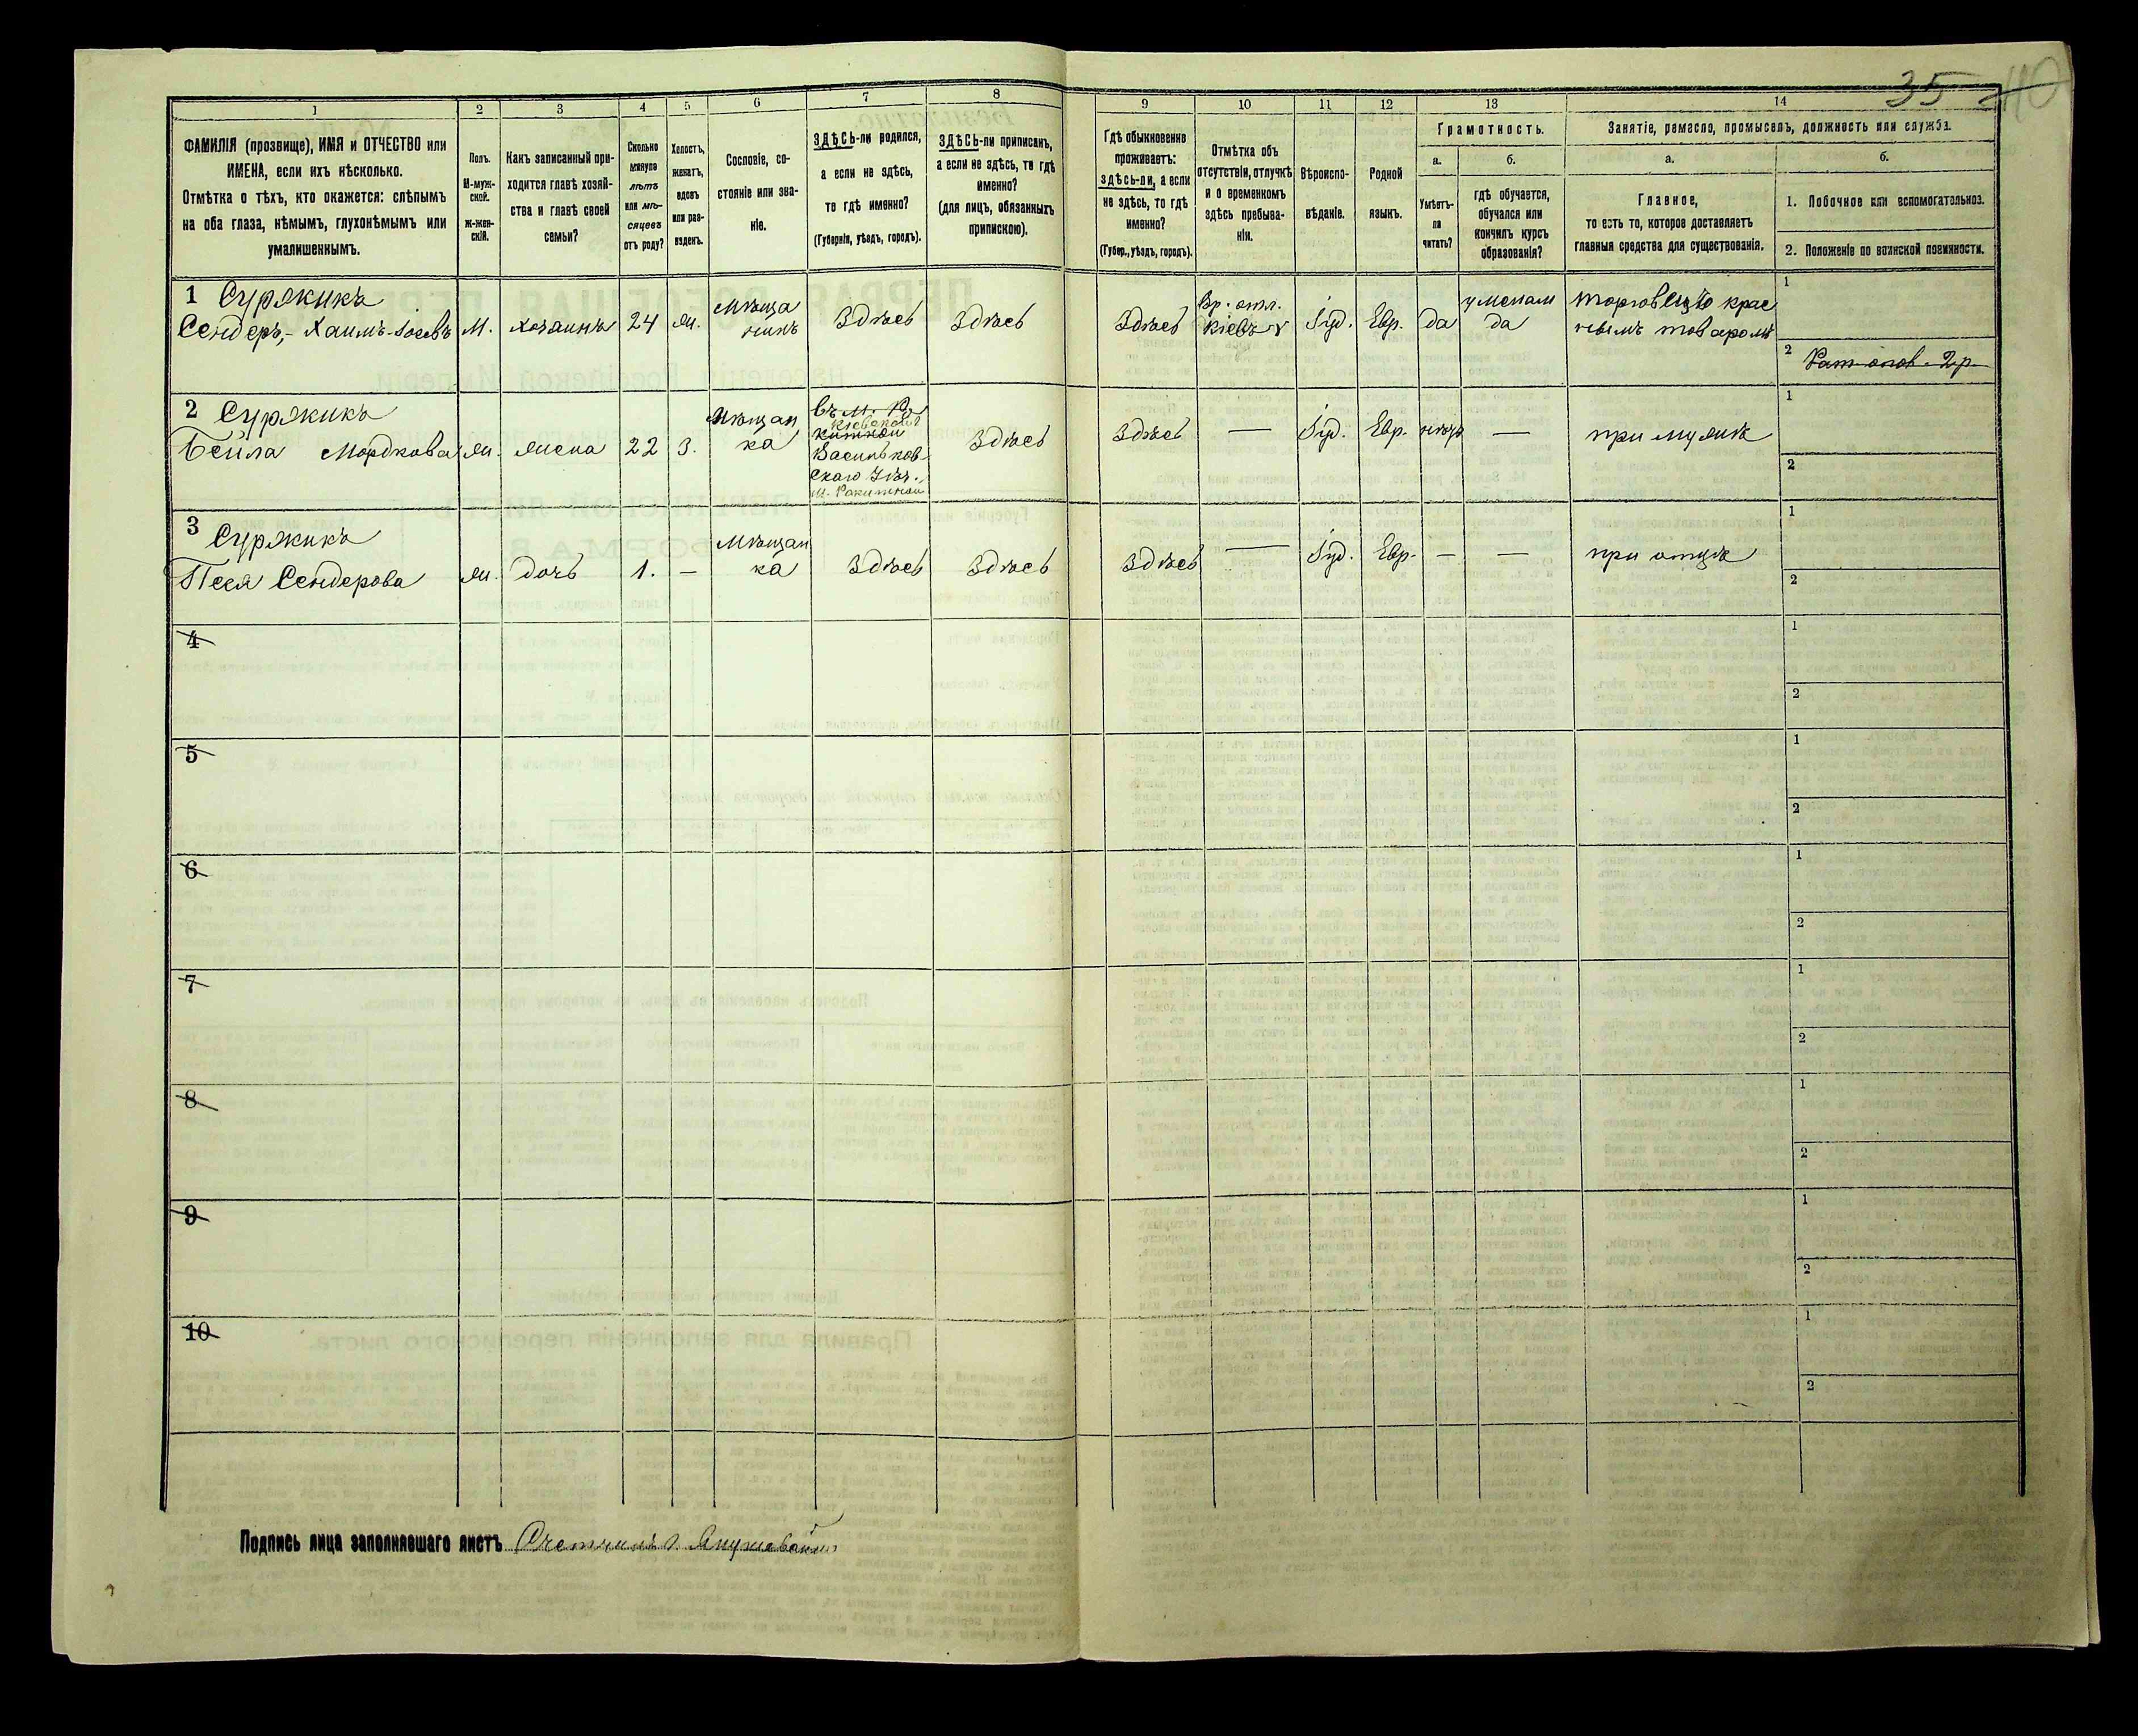 35 40
1
2
3
4
5
6
7
8
9
10
11
12
13
14
ФАМИЛІЯ (прозвище), ИМЯ и ОТЧЕСТВО или
ИМЕНА, если ихъ нѣсколько.
Отмѣтка о тѣхъ, кто окажется: слѣпымъ
на оба глаза, нѣмымъ, глухонѣмымъ или
умалишеннымъ.
Полъ.
М-муж-
ской.
ж-жен-
скій.
Какъ записанный при-
ходится главѣ хозяй-
ства и главѣ своей
семьи?
Сколько
минуло
лѣтъ
или мѣ-
сяцевъ
отъ роду?
Холостъ,
женатъ,
вдовъ
или раз-
веденъ.
Сословіе, со-
стояніе или зва-
ніе.
ЗДѢСЬ-ли родился,
а если не здѣсь,
то гдѣ именно?
(Губернія, уѣздъ, городъ).
ЗДѢСЬ-ли приписанъ,
а если не здѣсь, то гдѣ
именно?
(для лицъ, обязанныхъ
припискою).
Гдѣ обыкновенно
проживаетъ:
здѣсь-ли, а если
не здѣсь, то гдѣ
именно?
(Губер., уѣздъ, городъ).
Отмѣтка объ
отсутствіи, отлучкѣ
и о временномъ
здѣсь пребыва-
ніи.
Вѣроиспо-
вѣданіе.
Родной
языкъ.
Грамотность.
а.
Умѣетъ-
ли
читать?
б.
гдѣ обучается,
обучался или
кончилъ курсъ
образованія?
Занятіе, ремесло, промыселъ, должность или служба.
а.
Главное,
то есть то, которое доставляетъ
главныя средства для существованія.
б.
1. Побочное или вспомогательное.
2. Положеніе по воинской повинности.
1 Суржикъ
Сендеръ,- Хаимъ Іосевъ М. хозяинъ 24 ж. Мѣща
нинъ Здѣсь Здѣсь Здѣсь Вр. отл.
Кіевъ Іуд. Евр. да у мелам
да торговецъ крас
нымъ товаромъ
1
2 Рат. опов. 2 р.
2 Суржикъ
Бейла Мордкова ж. жена 22 З. Мѣщан
ка
Кіевской
Васильков
скаго Уѣз.
м. Ракитной
Здѣсь Здѣсь — Іуд. Евр. нѣтъ — при мужѣ
1
2
3 Суржикъ
Песя Сендерова ж. дочь 1. — Мѣщан
ка Здѣсь Здѣсь Здѣсь — Іуд. Евр. — — при отцѣ
1
2
4
1
2
5
1
2
6
1
2
7
1
2
8
1
2
9
1
2
10
1
2
Подпись лица заполнявшаго листъ Счетчикъ